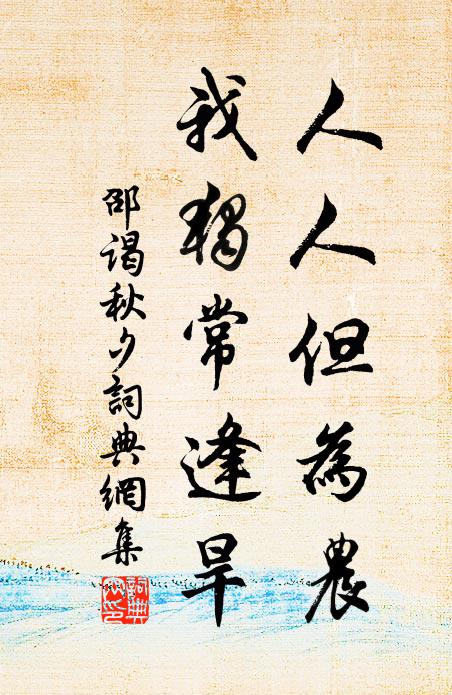 人人但為農
我獨常逢旱
邵謁秋夕詞典網集